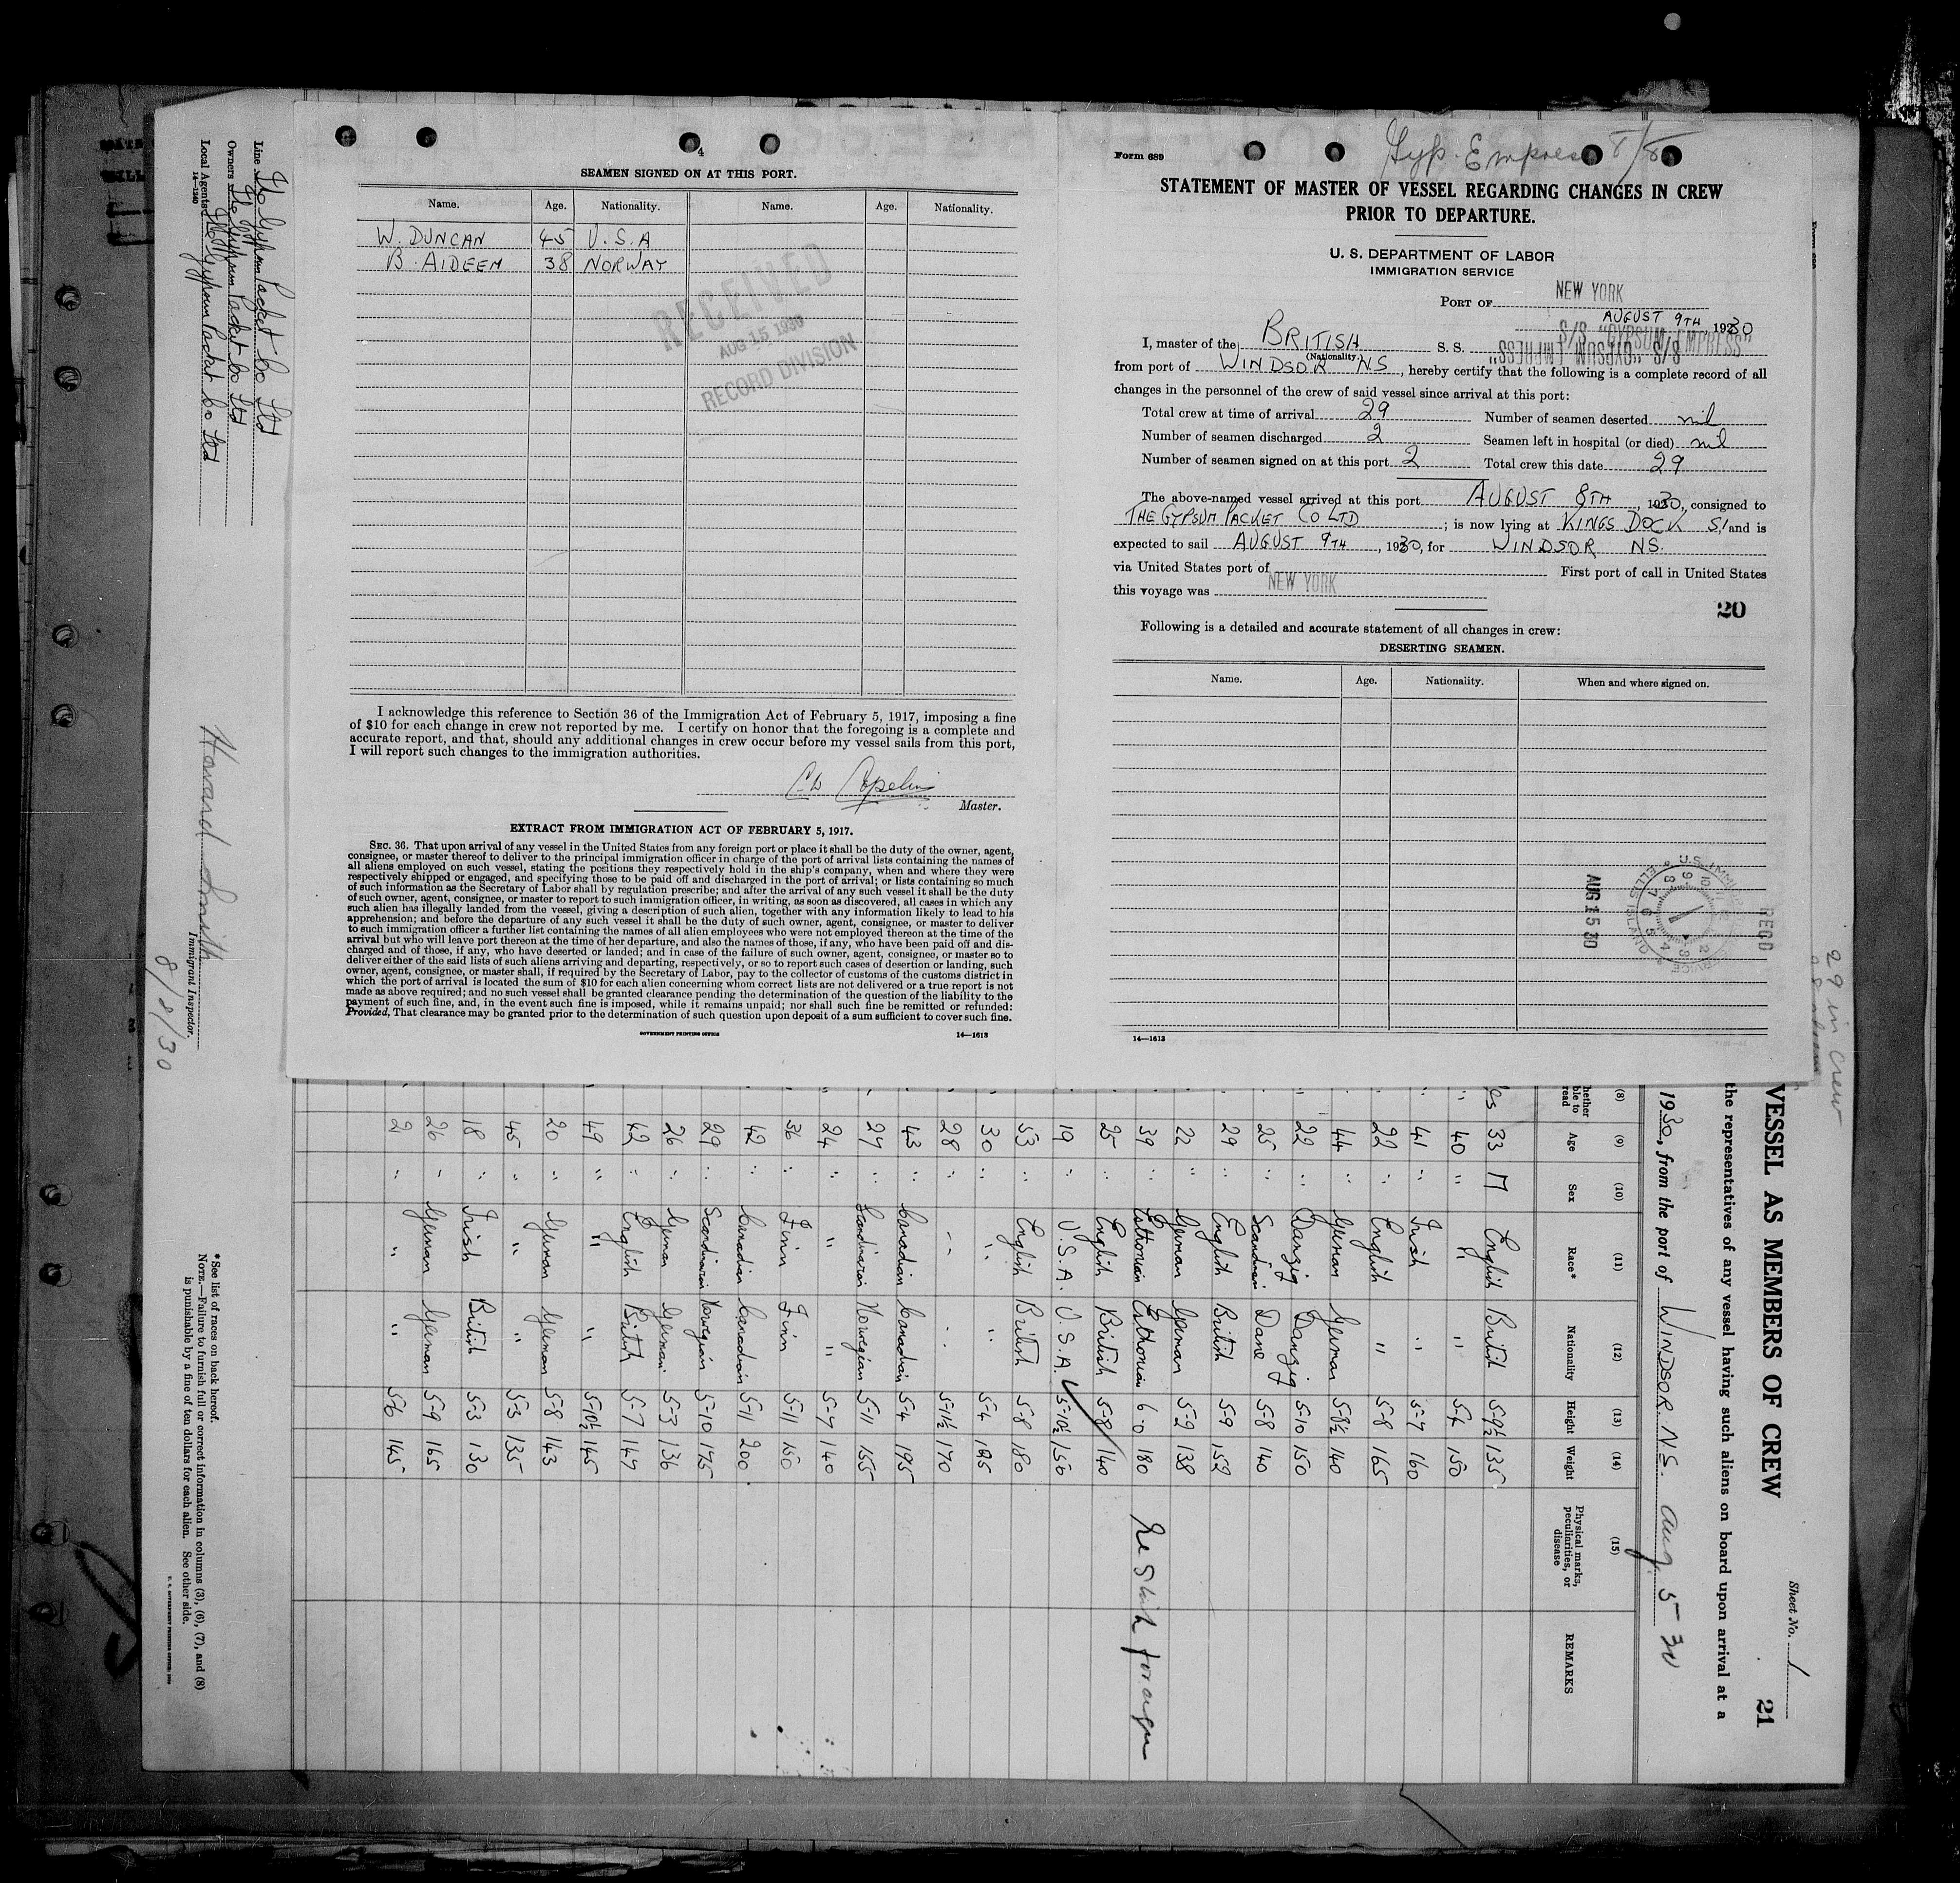 4
SEAMEN SIGNED ON AT THIS PORT.
Name. Age. Nationality. Name. Age. Nationality.
W. DUNCAN 45 U.S.A
B. AIDEEN 38 NORWAY
RECEIVED
AUG 15 1930
RECORD DIVISION
I acknowledge this reference to Section 36 of the Immigration Act of February 5, 1917, imposing a fine
of $10 for each change in crew not reported by me. I certify on honor that the foregoing is a complete and
accurate report, and that, should any additional changes in crew occur before my vessel sails from this port,
I will report such changes to the immigration authorities.
Master.
EXTRACT FROM IMMIGRATION ACT OF FEBRUARY 5, 1917.
SEC. 36. That upon arrival of any vessel in the United States from any foreign port or place it shall be the duty of the owner, agent,
consignee, or master thereof to deliver to the principal immigration officer in charge of the port of arrival lists containing the names of
all aliens employed on such vessel, stating the positions they respectively hold in the ship's company, when and where they were
respectively shipped or engaged, and specifying those to be paid off and discharged in the port of arrival; or lists containing so much
of such information as the Secretary of Labor shall by regulation prescribe; and after the arrival of any such vessel it shall be the duty
of such owner, agent, consignee, or master to report to such immigration officer, in writing, as soon as discovered, all cases in which any
such alien has illegally landed from the vessel, giving a description of such alien, together with any information likely to lead to his
apprehension; and before the departure of any such vessel it shall be the duty of such owner, agent, consignee, or master to deliver
to such immigration officer a further list containing the names of all alien employees who were not employed thereon at the time of the
arrival but who will leave port thereon at the time of her departure, and also the names of those, if any, who have been paid off and dis-
charged and of those, if any, who have deserted or landed; and in case of the failure of such owner, agent, consignee, or master so to
deliver either of the said lists of such aliens arriving and departing, respectively, or so to report such cases of desertion or landing, such
owner, agent, consignee, or master, shall, if required by the Secretary of Labor, pay to the collector of customs of the customs district in
which the port of arrival is located the sum of $10 for each alien concerning whom correct lists are not delivered or a true report is not
made as above required; and no such vessel shall be granted clearance pending the determination of the question of the liability to the
payment of such fine, and, in the event such fine is imposed, while it remains unpaid; nor shall such fine be remitted or refunded:
Provided, That clearance may be granted prior to the determination of such question upon deposit of a sum sufficient to cover such fine.
GOVERNMENT PRINTING OFFICE 14—1613
Form 689
Gyp. Empress 8/8
STATEMENT OF MASTER OF VESSEL REGARDING CHANGES IN CREW
PRIOR TO DEPARTURE.
U. S. DEPARTMENT OF LABOR
IMMIGRATION SERVICE
PORT OF NEW YORK
AUGUST 9TH, 1930
I, master of the BRITISH S. S. S/S "GYPSUM EMPRESS"
S/S "GYPSUM EMPRESS"
(Nationality.)
from port of WINDSOR NS, hereby certify that the following is a complete record of all
changes in the personnel of the crew of said vessel since arrival at this port:
Total crew at time of arrival 29 Number of seamen deserted nil
Number of seamen discharged 2 Seamen left in hospital (or died) nil
Number of seamen signed on at this port 2 Total crew this date 29
The above-named vessel arrived at this port AUGUST 8TH, 1930, consigned to
THE GYPSUM PACKET CO LTD; is now lying at KINGS DOCK S.I and is
expected to sail AUGUST 9TH, 1930, for WINDSOR NS.
via United States port of First port of call in United States
this voyage was NEW YORK
20
Following is a detailed and accurate statement of all changes in crew:
DESERTING SEAMEN.
Name. Age. Nationality. When and where signed on.
AUG 15 30
U.S. IMMIG SERVICE ELLIS ISLAND
REC'D
14—1613
Line The Gypsum Packet Co Ltd
Owners The Gypsum Packet Co Ltd
Local Agents The Gypsum Packet Co Ltd
14—1240
Howard Smith
Immigrant Inspector.
8/8/30
29 in crew
Sheet No. 1
21
VESSEL AS MEMBERS OF CREW
the representatives of any vessel having such aliens on board upon arrival at a
1930, from the port of WINDSOR. N.S. Aug 5 30
(8) (9) (10) (11) (12) (13) (14) (15)
hether ble to read Age Sex Race* Nationality Height Weight Physical marks, peculiarities, or disease REMARKS
es 33 M English British 5-9½ 135
" 40 " " " 5-4 150
" 41 " Irish " 5-7 160
22 " English " 5-8 165
44 " German German 5-8½ 140
22 " Danzig Danzig 5-10 150
25 " Scandian Dane 5-8 140
29 " English British 5-9 152
22 " German German 5-9 138
39 " Esthonian Esthonian 6-0 180
25 " English British 5-8 140
19 " U.S.A. U.S.A. 5-10½ 150
53 " English British 5-8 180
30 " " " 5-4 195
28 " " " 5-11½ 170
43 " Canadian Canadian 5-4 195
27 " Scandinavian Norwegian 5-11 155
24 " " " 5-7 140
36 " Finn Finn 5-11 150
42 " Canadian Canadian 5-11 200
29 " Scandinavian Norwegian 5-10 175
26 " German German 5-3 136
42 " English British 5-7 147
49 " " " 5-10½ 145
20 " German German 5-8 143
45 " " " 5-3 135
18 " Irish British 5-3 130
26 " German German 5-9 165
21 " " " 5-6 145
*See list of races on back hereof.
NOTE.—Failure to furnish full or correct information in columns (3), (6), (7), and (8)
is punishable by a fine of ten dollars for each alien. See other side.